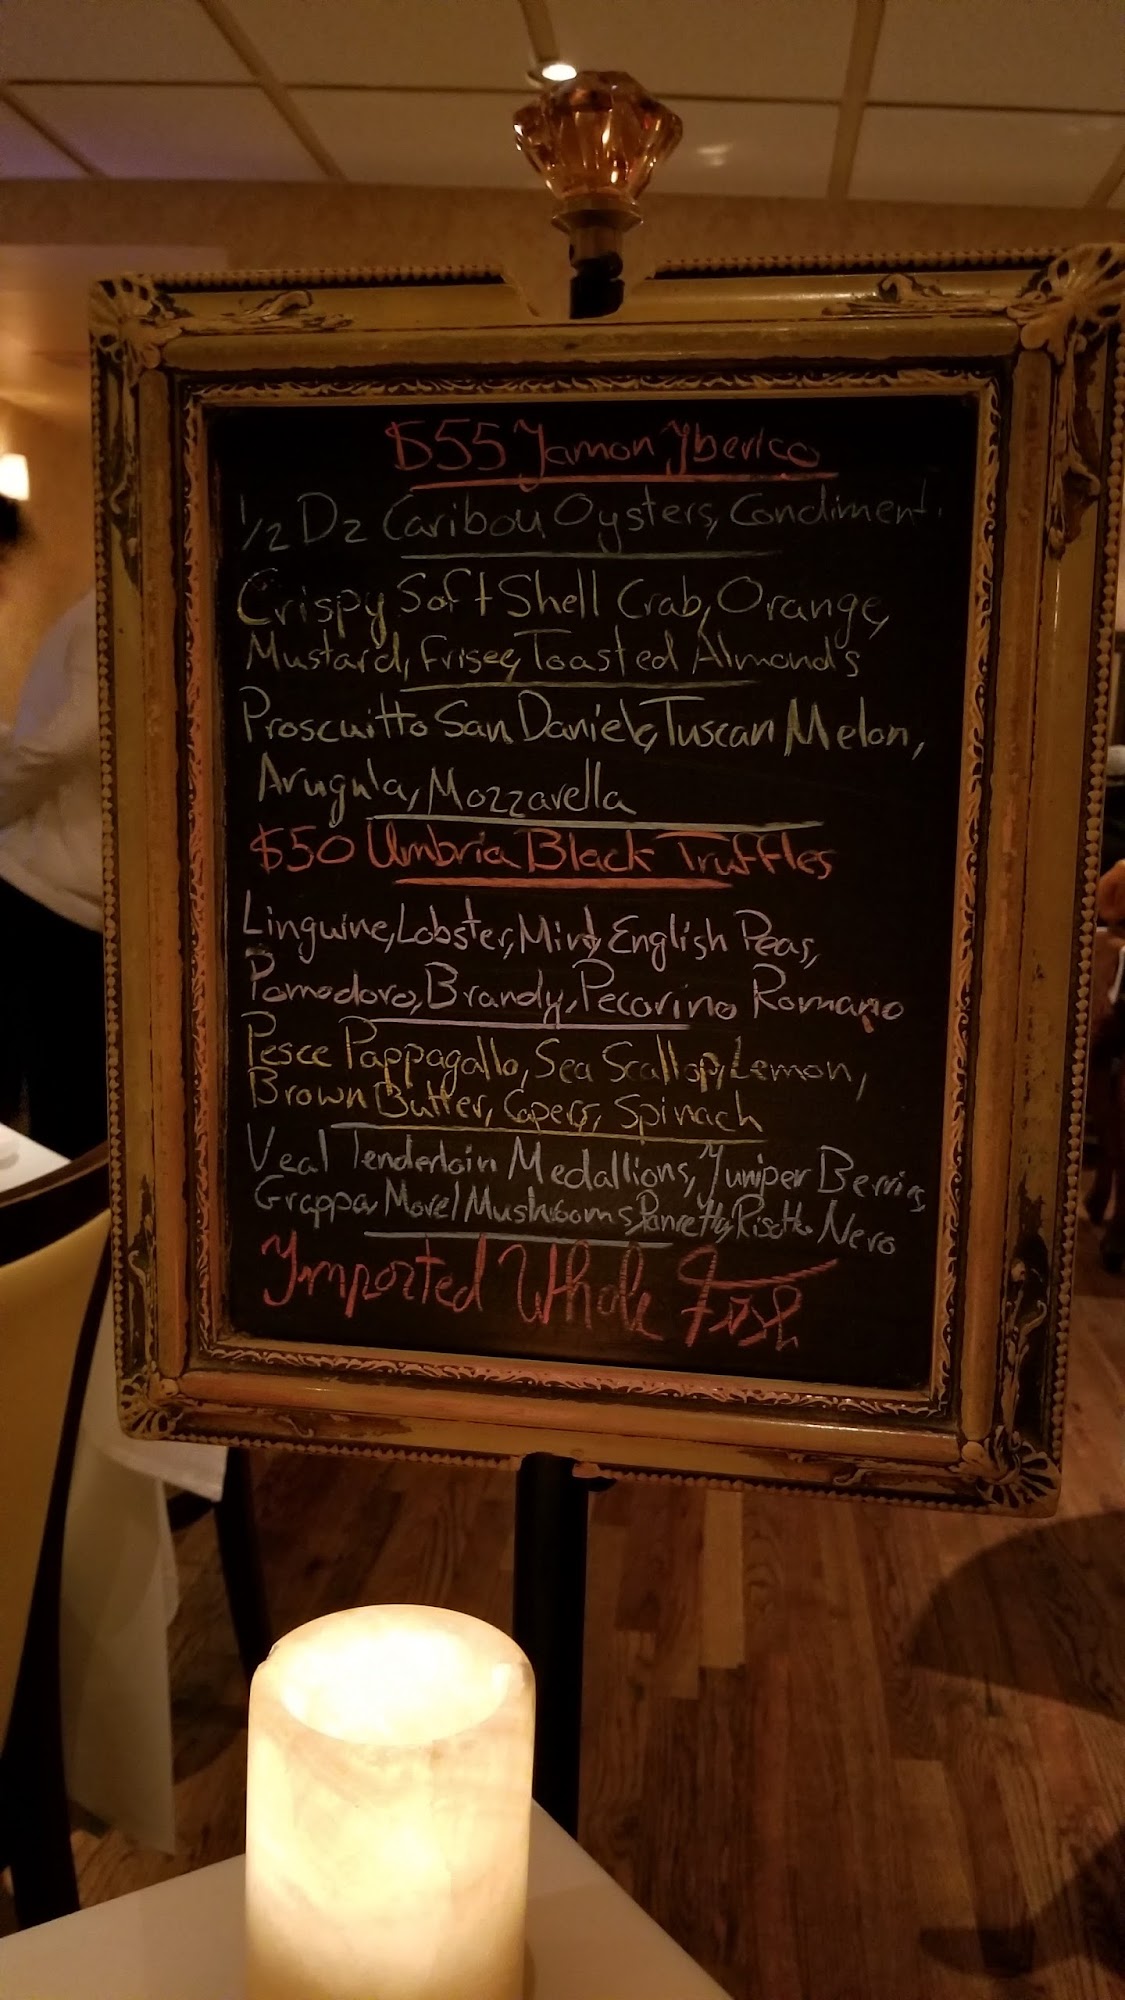 $55 Jamon Iberico
1/2 Dz Caribou Oysters, Condiment.
Crispy Soft Shell Crab, Orange,
Mustard, Frisee, Toasted Almonds
Proscuitto San Daniele, Tuscan Melon,
Arugula, Mozzarella
$50 Umbria Black Truffles
Linguine, Lobster, Mint, English Peas,
Pomodoro, Brandy, Pecorino Romano
Pesce Pappagallo, Sea Scallop, Lemon,
Brown Butter, Capers, Spinach
Veal Tenderloin Medallions, Juniper Berries,
Grappa, Morel Mushrooms, Pancetta, Risotto Nero
Imported Whole Fish